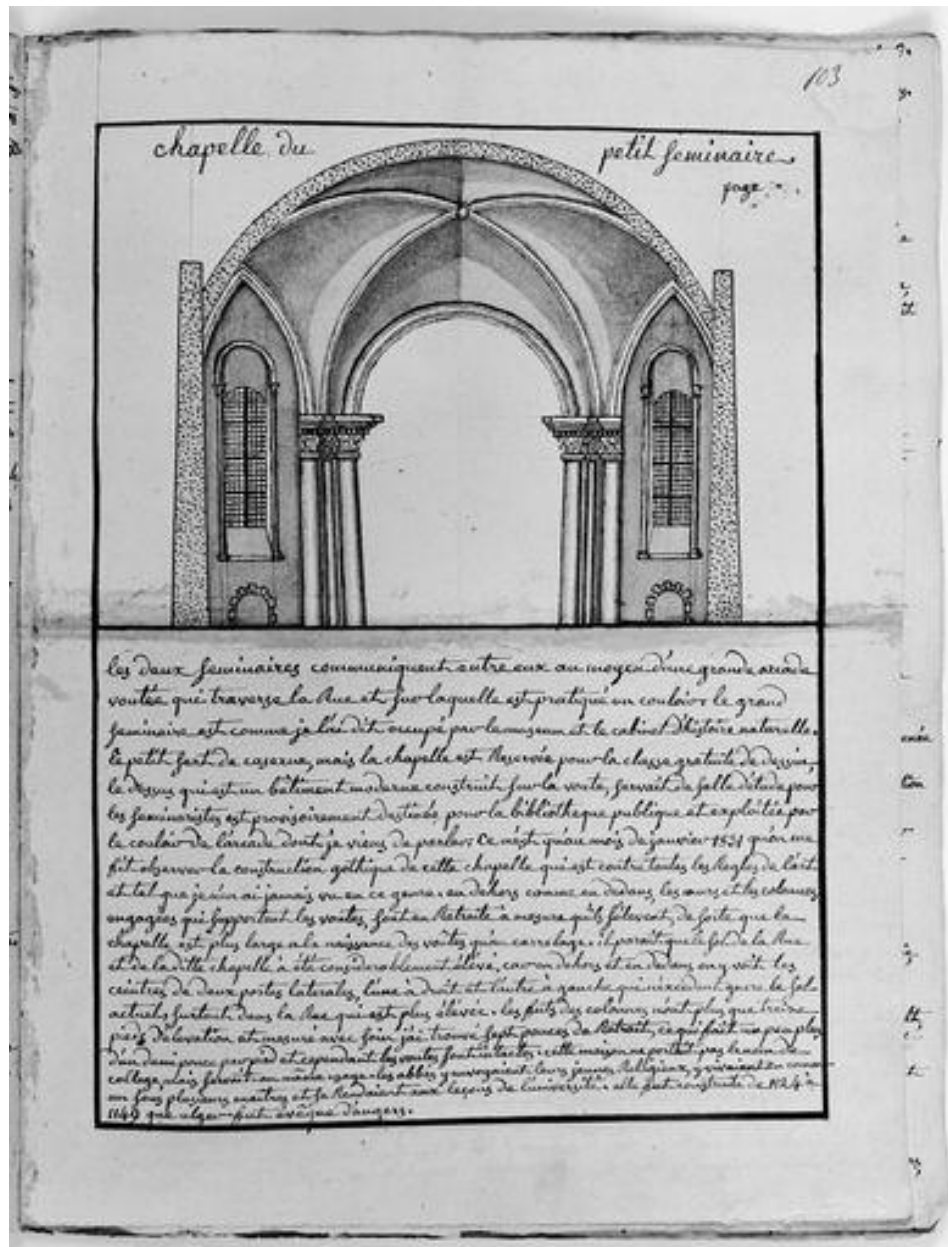 103
chapelle du petit seminaire
page
les deux seminaires communiquent entre eux au moyen d'une grande arcade
voutée qui traverse la Rue et sur laquelle est pratiqué un couloir le grand
seminaire est comme je l'ai dit occupé par le museum et le cabinet d'histoire naturelle.
le petit sert de caserne, mais la chapelle est Reservée pour la classe gratuite de dessin,
le dessus qui est un bâtiment moderne construit sur la voute, servait de salle d'étude pour
les seminaristes est provisoirement destinée pour la bibliotheque publique et exploitée par
le couloir de l'arcade dont je viens de parler. Ce n'est qu'au mois de janvier 1831 qu'on me
fit observer la construction gothique de cette chapelle qui est contre toutes les Regles de l'art
et tel que je n'en ai jamais vu en ce genre. en dehors comme en dedans les murs et les colonnes
engagées qui supportent les voutes, sont en Retraite à mesure qu'ils s'élevent, de sorte que la
chapelle est plus large a la naissance des voûtes qu'au carrelage. il parait que le sol de la Rue
et de la ditte chapelle à été considerablement élevé, car en dehors et en dedans on y voit les
ceintres de deux portes laterales, l'une à droit et l'autre à gauche qui n'excedent guere le sol
actuel, surtout dans la Rue qui est plus élevée. les futs des colonnes n'ont plus que treize
pieds d'élevation et mesuré avec soin j'ai trouvé sept pouces de Retrait, ce qui fait un peu plus
d'un demi pouce par pied et cependant les voutes sont intactes. cette maison ne portait pas le nom de
college, mais servoit au même usage. les abbés y envoyaient leurs jeunes Religieux, y vivaient en
sous plusieurs maitres et se Rendaient aux leçons de l'université. elle fut construite de 1124 à
1149 que ulger fut évêque d'angers.